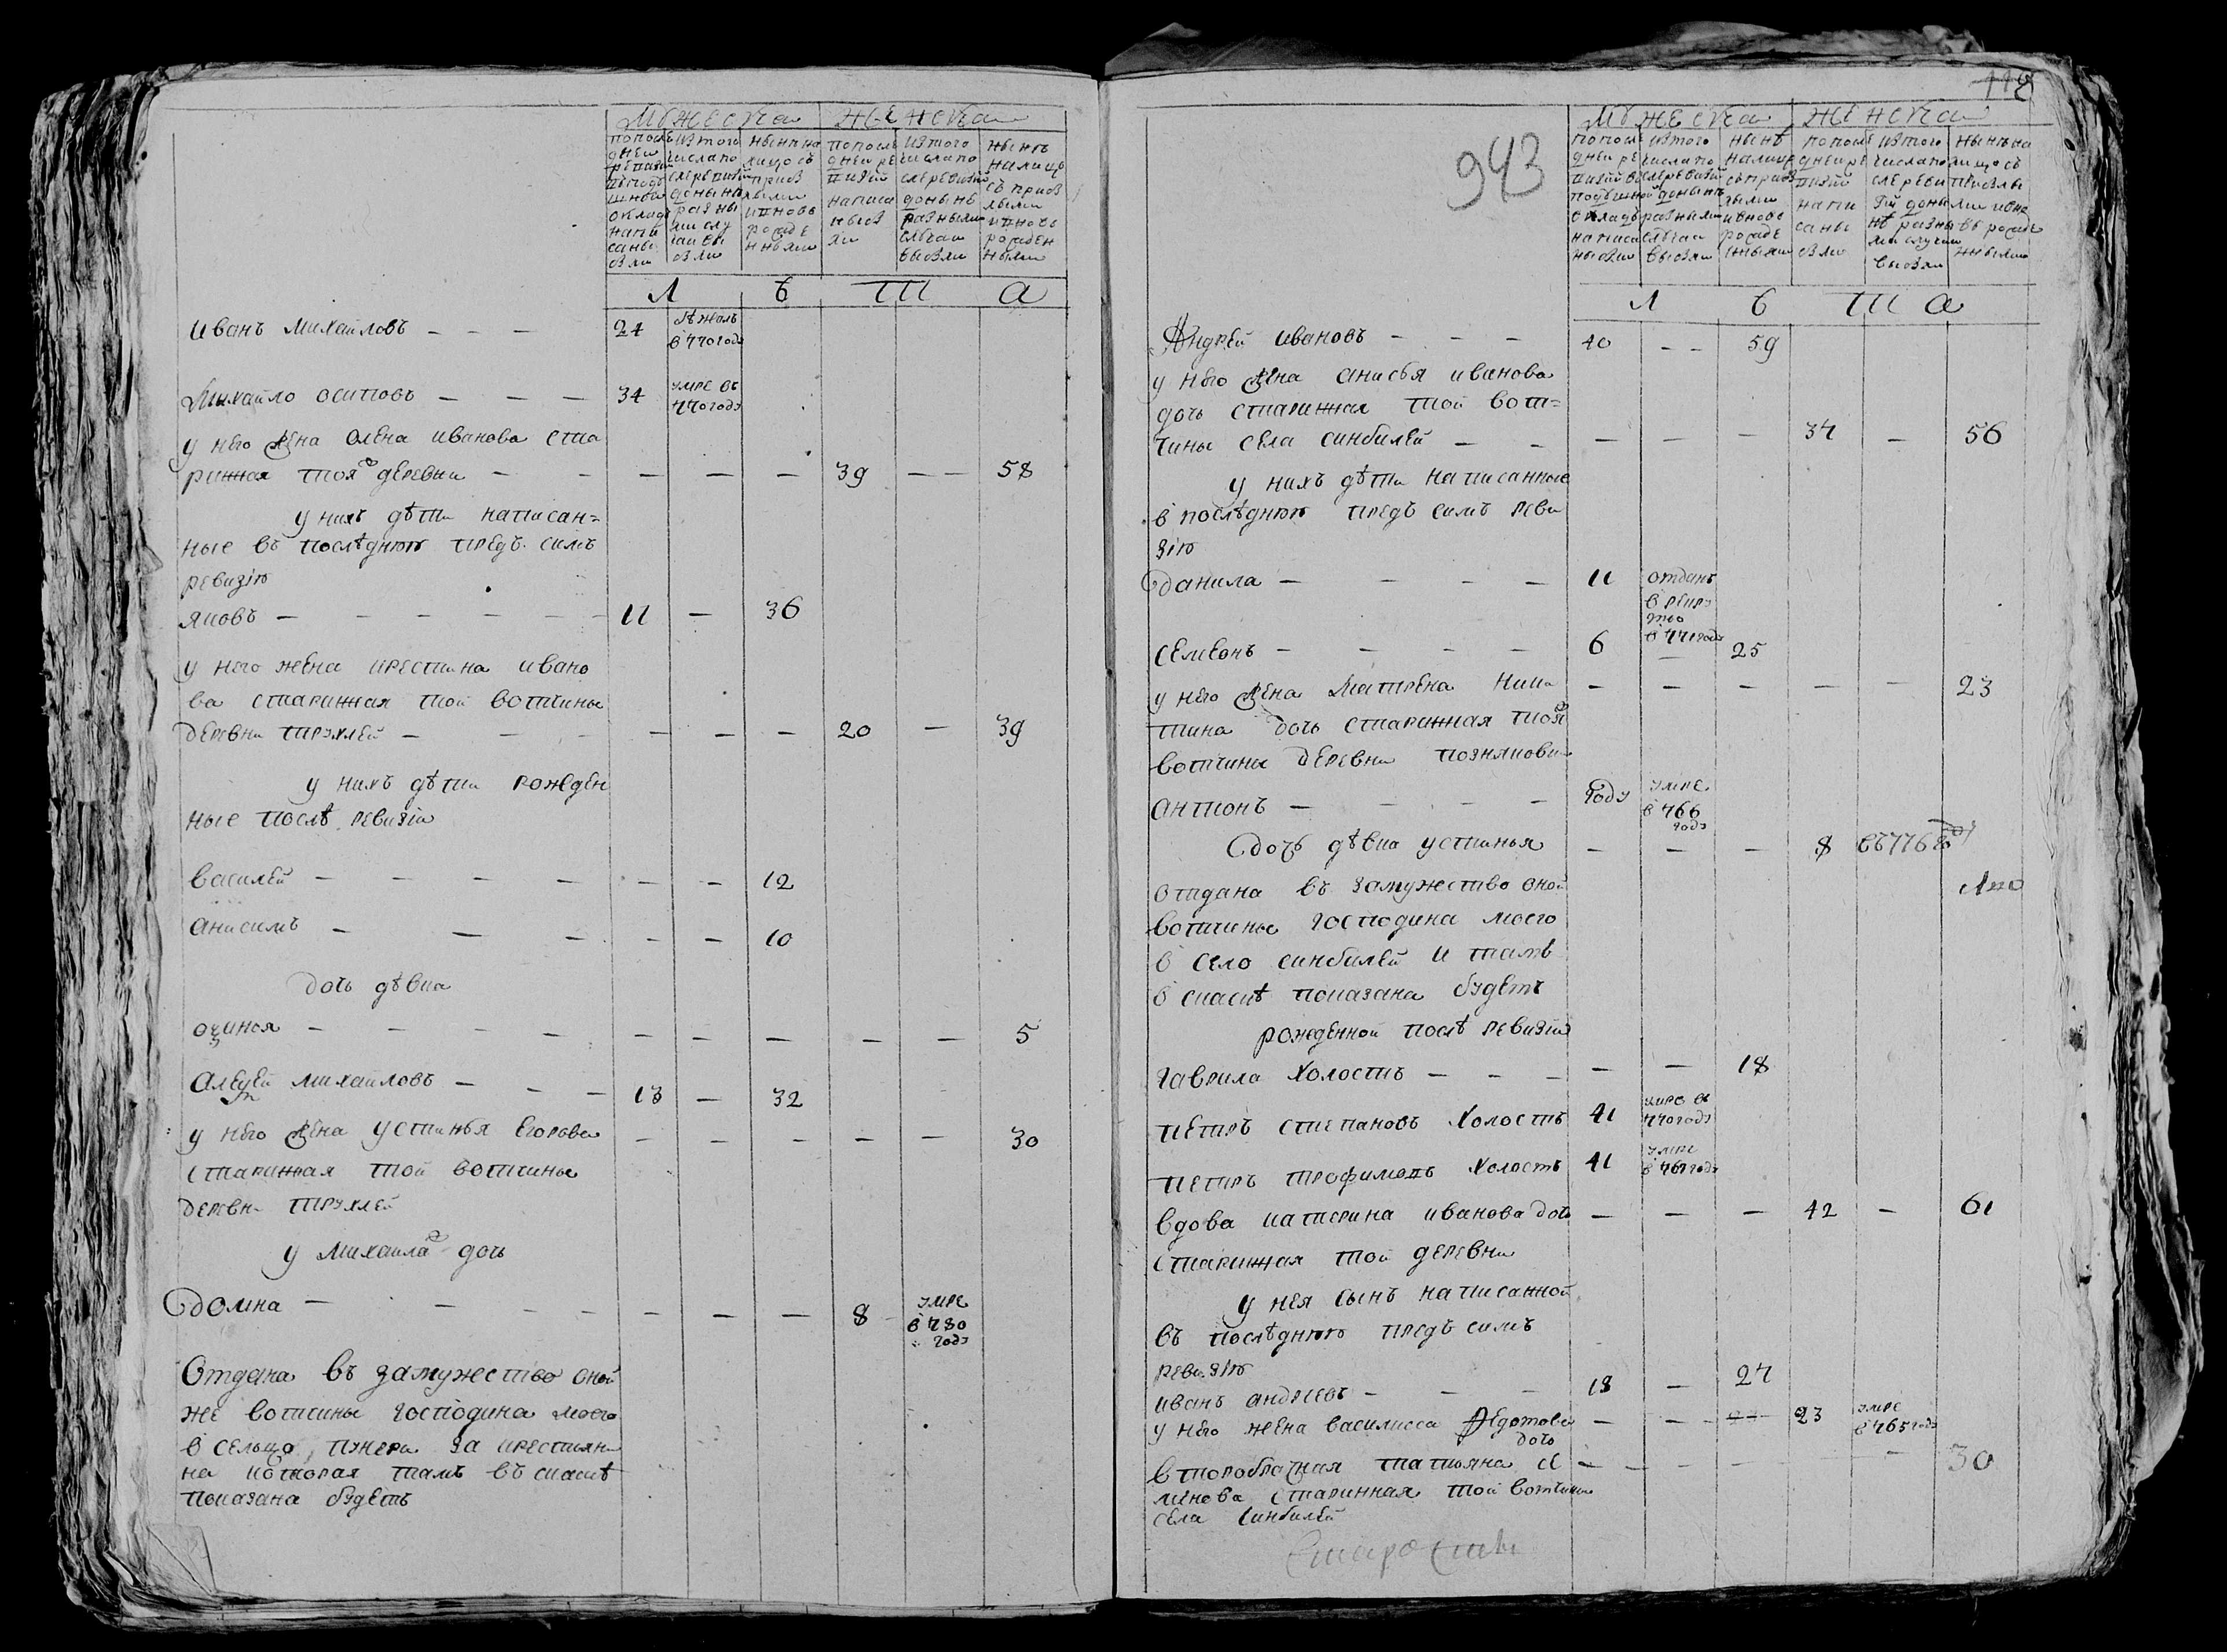 Мужеска Женска
по последней ревизии в подушной оклад написаны были
из того числа после ревизии до ныне разными случаи выбыли
ныне на лицо с прибылыми и вновь рожденными
по последней ревизии написаных было
из того числа после ревизии до ныне разными случаи выбыли
ныне на лицо с прибылыми и вновь рожденными
Л Ѣ Т А
иванъ михайловъ — — — 24 бѣжалъ в 770 году
михайло осиповъ — — — 34 умре въ 770 году
у него жена олена иванова ста
ринная тоя деревни — — — — — 39 — — 58
у нихъ дѣти написан=
ные въ послѣднюю предъ симъ
ревизiю
яковъ — — — — — — 11 — 36
у него жена крестина ивано
ва старинная той вотчины
деревни трухлей — — — — — — 20 — 39
у нихъ дѣти рожден
ные послѣ ревизiи
василей — — — — — — 12
анисимъ — — — — — 10
дочь дѣвка
— — — — — — — — — 5
алексей михаиловъ — — — 13 — 32
у него жена устинья егорова — — — — — 30
старинная той вотчины
деревни трухлей
у михаила дочь
домна — — — — — — — 8 умре в 780 году
Отдана въ замужество оной
же вотчины господина моего
в сельцо за крестьяни
на которая тамъ въ скаскѣ
показана будетъ
943
Мужеска Женска
по последней ревизии в подушной оклад написаны были
из того числа после ревизии до ныне разными случаи выбыли
ныне на лицо с прибылыми и вновь рожденными
по последней ревизии написаны были
из того числа после ревизии до ныне разными случаи выбыли
ныне на лицо с прибылыми и вновь рожденными
Л Ѣ Т А
Андрей ивановъ — — — 40 — — 59
у него жена анисья иванова
дочь старинная той вот=
чины села синбилей — — — — — 37 — 56
у нихъ дѣти написанные
в послѣднюю предъ симъ реви
зiю
данила — — — — 11 отданъ в рекруто в 771 году
семенъ — — — — 6 — 25
у него жена матрена ники — — — — — 23
тина дочь старинная тоя
вотчины деревни
антонъ — — — — году умре в 766 году
дочь дѣвка устинья — — — 8 въ 776 году
отдана въ замужество оной
вотчины господина моего
в село синбилей и тамъ
в скаскѣ показана будетъ
рожденной послѣ ревизiи
гаврила холостъ — — — — — 18
петръ степановъ холостъ 41 умре въ 770 году
петръ трофимовъ холостъ 41 умре в 767 году
вдова катерина иванова дочь — — — 42 — 61
старинная той деревни
у нея сынъ написанной
въ послѣднюю предъ симъ
ревизiю
иванъ андреевъ — — — 18 — 27
у него жена василисса федотова дочь — — — 23 умре в 765 году
второбрачная татьяна се — — — — — 30
менова старинная той вотчины
села синбилей